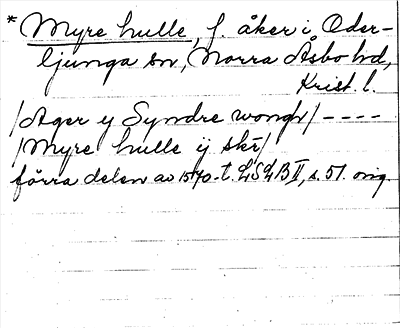 * Myre hulle, f. åker i Oder-
ljunga sn, Norra Åsbo hd,
Krist. l.
/Ager y Syndre wongh/ ----
/Myre hulle ij skr/
förra delen av 1570-t. LSLB II, s. 51. orig.